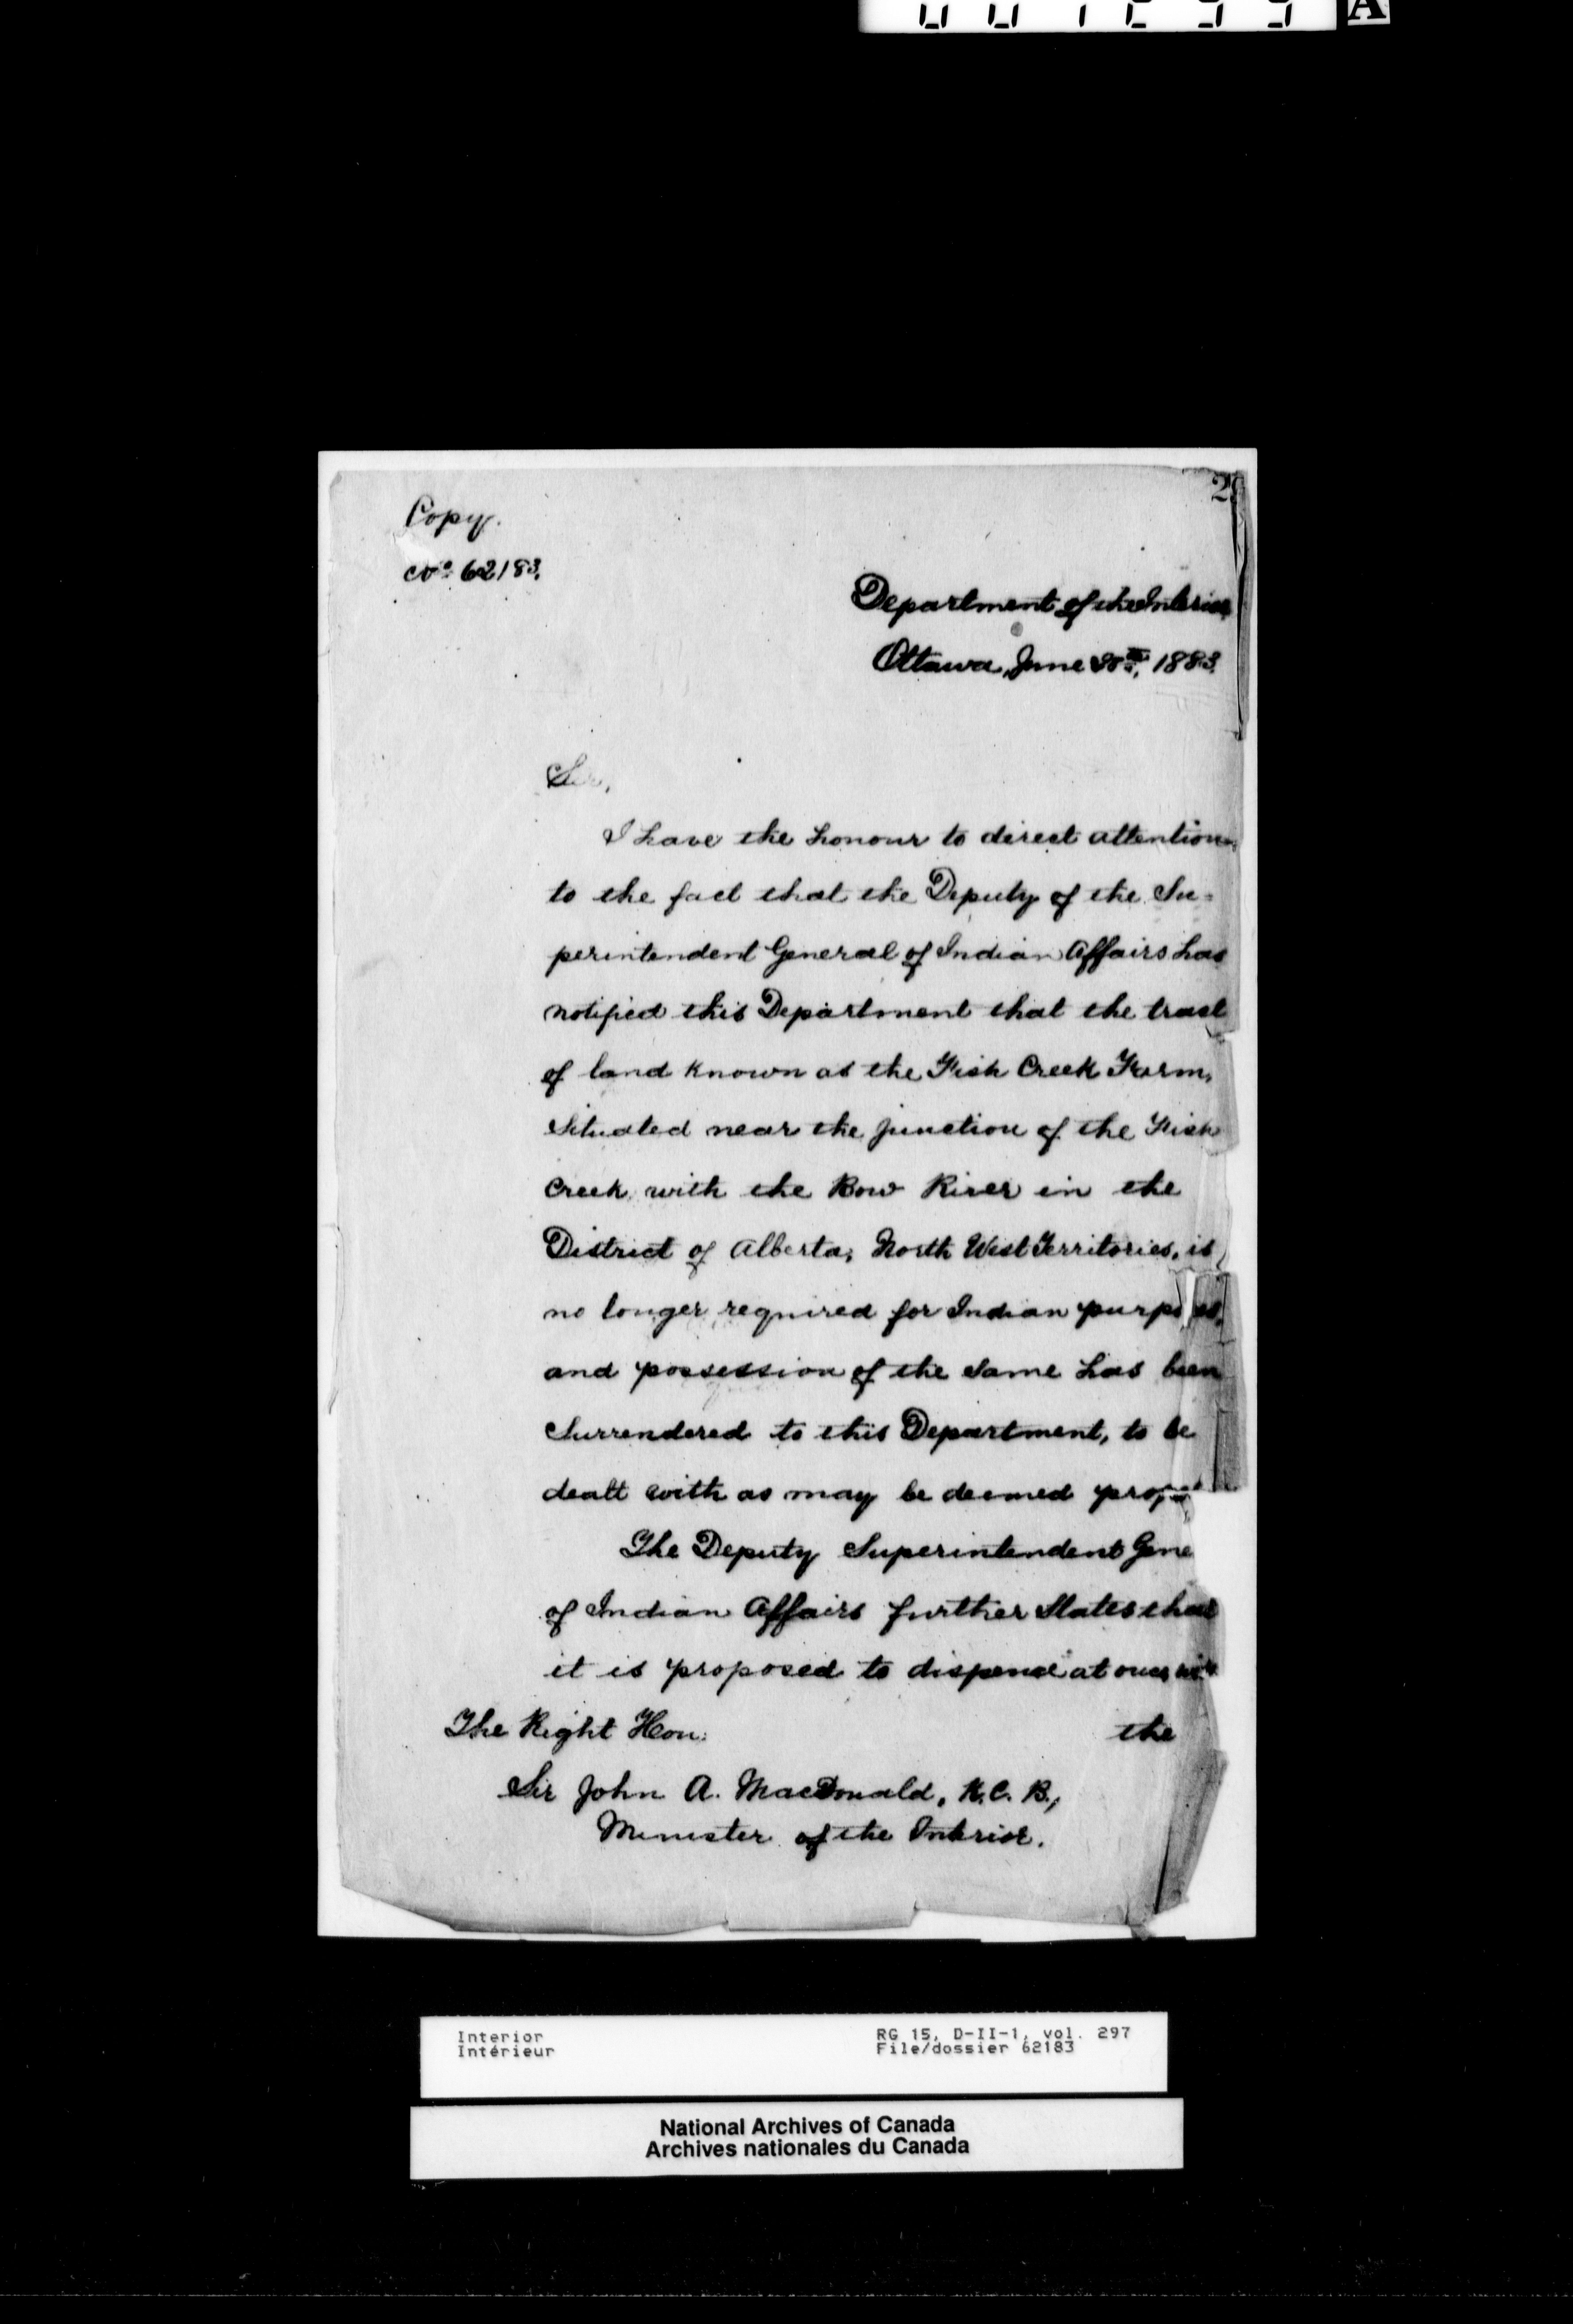 A
2
Copy.
No. 62183.
Department of the Interior
Ottawa, June th, 1883.
Sir,
I have the honour to direct attention
to the fact that the Deputy of the Su=
perintendent General of Indian Affairs has
notified this Department that the tract
of land known as the Fish Creek Farm,
situated near the junction of the Fish
Creek with the Bow River in the
District of Alberta, North West Territories, is
no longer required for Indian purposes,
and possession of the same has been
surrendered to this Department, to be
dealt with as may be deemed proper
The Deputy Superintendent Gene
of Indian Affairs further states that
it is proposed to dispense at once with
the
The Right Hon:
Sir John A. MacDonald, K.C.B.,
Minister of the Interior.
Interior
Intérieur
RG 15, D-II-1, vol. 297
File/dossier 62183
National Archives of Canada
Archives nationales du Canada